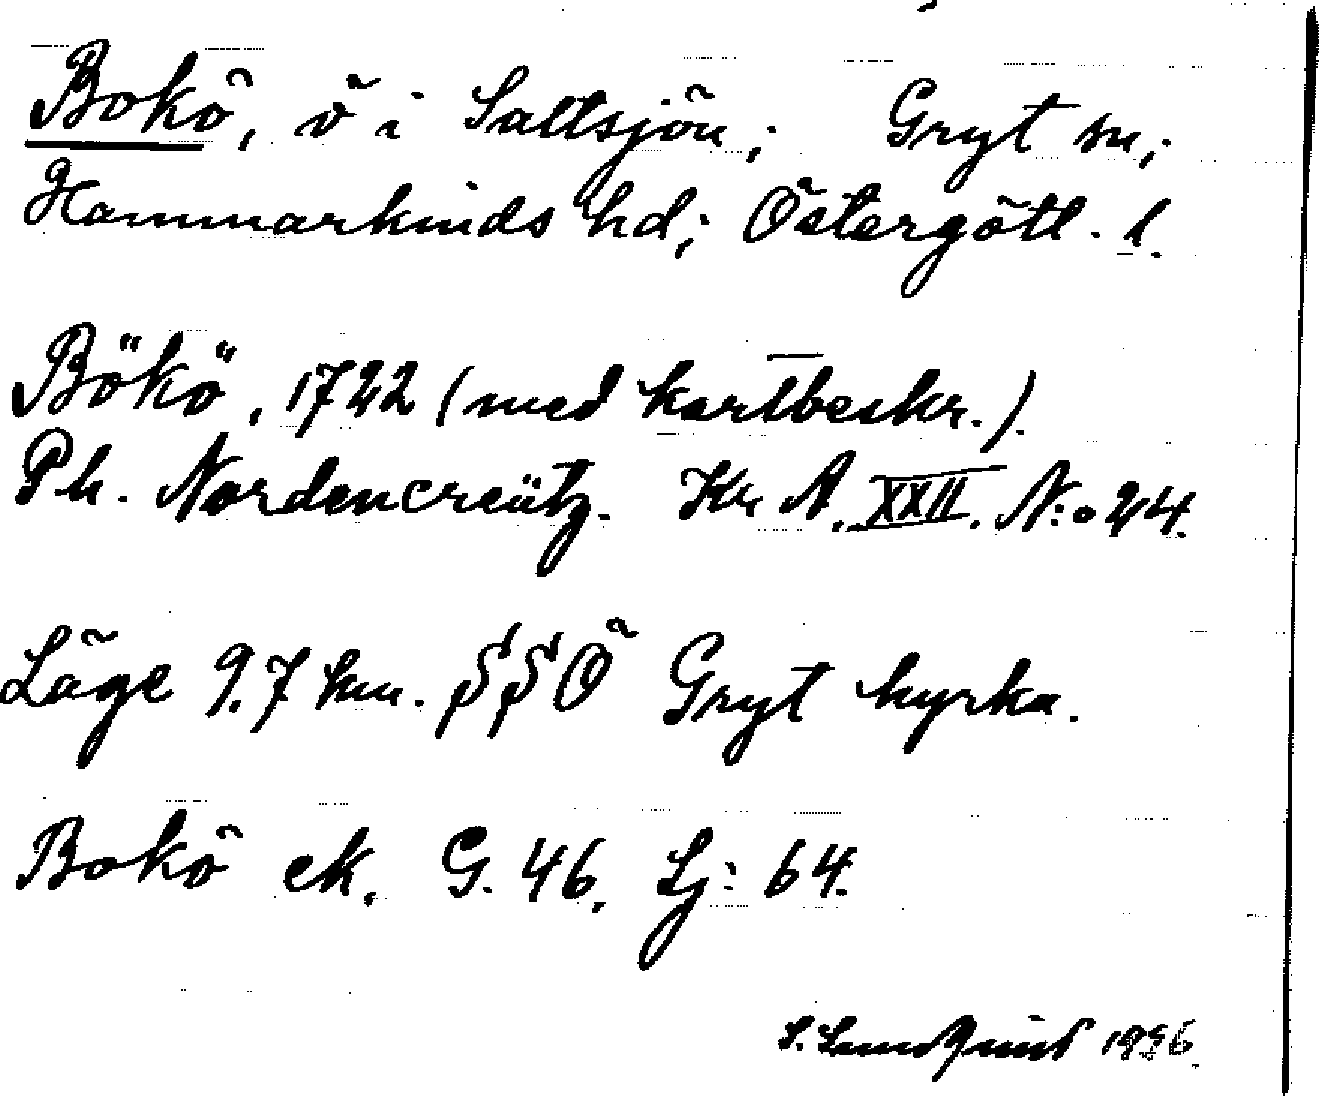 Bokö, ö i Saltsjön; Gryt sn;
Hammarkinds hd; Östergötl. l.
Bökö, 1722 (med kartbeskr.).
Ph. Nordencreütz. Kr A. XXII. N:o 24.
Läge 9.7 km. SSÖ Gryt kyrka.
Bokö ek. G. 46, Lj: 64.
S. Lundquist 1936.